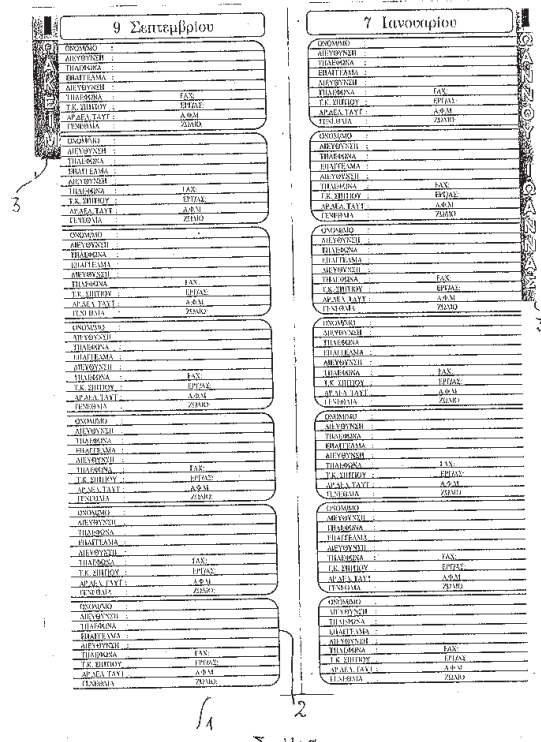 9 Σεπτεμβρίου
ΟΝΟΜ/ΜΟ :
ΔΙΕΥΘΥΝΣΗ :
ΤΗΛΕΦΩΝΑ :
ΕΠΑΓΓΕΛΜΑ :
ΔΙΕΥΘΥΝΣΗ :
ΤΗΛΕΦΩΝΑ FAX:
Τ.Κ. ΣΠΙΤΙΟΥ : ΕΡΓ/ΑΣ:
ΑΡ.ΔΕΛ.ΤΑΥΤ : Α.Φ.Μ
ΓΕΝΕΘΛΙΑ ΖΩΔΙΟ:
ΟΝΟΜ/ΜΟ :
ΔΙΕΥΘΥΝΣΗ :
ΤΗΛΕΦΩΝΑ :
ΕΠΑΓΓΕΛΜΑ :
ΔΙΕΥΘΥΝΣΗ :
ΤΗΛΕΦΩΝΑ FAX:
Τ.Κ. ΣΠΙΤΙΟΥ : ΕΡΓ/ΑΣ:
ΑΡ.ΔΕΛ.ΤΑΥΤ : Α.Φ.Μ
ΓΕΝΕΘΛΙΑ ΖΩΔΙΟ:
ΟΝΟΜ/ΜΟ :
ΔΙΕΥΘΥΝΣΗ :
ΤΗΛΕΦΩΝΑ :
ΕΠΑΓΓΕΛΜΑ :
ΔΙΕΥΘΥΝΣΗ :
ΤΗΛΕΦΩΝΑ FAX:
Τ.Κ. ΣΠΙΤΙΟΥ : ΕΡΓ/ΑΣ:
ΑΡ.ΔΕΛ.ΤΑΥΤ : Α.Φ.Μ
ΓΕΝΕΘΛΙΑ ΖΩΔΙΟ:
ΟΝΟΜ/ΜΟ :
ΔΙΕΥΘΥΝΣΗ :
ΤΗΛΕΦΩΝΑ :
ΕΠΑΓΓΕΛΜΑ :
ΔΙΕΥΘΥΝΣΗ :
ΤΗΛΕΦΩΝΑ FAX:
Τ.Κ. ΣΠΙΤΙΟΥ : ΕΡΓ/ΑΣ:
ΑΡ.ΔΕΛ.ΤΑΥΤ : Α.Φ.Μ
ΓΕΝΕΘΛΙΑ ΖΩΔΙΟ:
ΟΝΟΜ/ΜΟ :
ΔΙΕΥΘΥΝΣΗ :
ΤΗΛΕΦΩΝΑ :
ΕΠΑΓΓΕΛΜΑ :
ΔΙΕΥΘΥΝΣΗ :
ΤΗΛΕΦΩΝΑ FAX:
Τ.Κ. ΣΠΙΤΙΟΥ : ΕΡΓ/ΑΣ:
ΑΡ.ΔΕΛ.ΤΑΥΤ : Α.Φ.Μ
ΓΕΝΕΘΛΙΑ ΖΩΔΙΟ:
ΟΝΟΜ/ΜΟ :
ΔΙΕΥΘΥΝΣΗ :
ΤΗΛΕΦΩΝΑ :
ΕΠΑΓΓΕΛΜΑ :
ΔΙΕΥΘΥΝΣΗ :
ΤΗΛΕΦΩΝΑ FAX:
Τ.Κ. ΣΠΙΤΙΟΥ : ΕΡΓ/ΑΣ:
ΑΡ.ΔΕΛ.ΤΑΥΤ : Α.Φ.Μ
ΓΕΝΕΘΛΙΑ ΖΩΔΙΟ:
ΟΝΟΜ/ΜΟ :
ΔΙΕΥΘΥΝΣΗ :
ΤΗΛΕΦΩΝΑ :
ΕΠΑΓΓΕΛΜΑ :
ΔΙΕΥΘΥΝΣΗ :
ΤΗΛΕΦΩΝΑ FAX:
Τ.Κ. ΣΠΙΤΙΟΥ : ΕΡΓ/ΑΣ:
ΑΡ.ΔΕΛ.ΤΑΥΤ : Α.Φ.Μ
ΓΕΝΕΘΛΙΑ ΖΩΔΙΟ:
3
1
2
7 Ιανουαρίου
ΟΝΟΜ/ΜΟ :
ΔΙΕΥΘΥΝΣΗ :
ΤΗΛΕΦΩΝΑ :
ΕΠΑΓΓΕΛΜΑ :
ΔΙΕΥΘΥΝΣΗ :
ΤΗΛΕΦΩΝΑ FAX:
Τ.Κ. ΣΠΙΤΙΟΥ : ΕΡΓ/ΑΣ:
ΑΡ.ΔΕΛ.ΤΑΥΤ : Α.Φ.Μ
ΓΕΝΕΘΛΙΑ ΖΩΔΙΟ:
ΟΝΟΜ/ΜΟ :
ΔΙΕΥΘΥΝΣΗ :
ΤΗΛΕΦΩΝΑ :
ΕΠΑΓΓΕΛΜΑ :
ΔΙΕΥΘΥΝΣΗ :
ΤΗΛΕΦΩΝΑ FAX:
Τ.Κ. ΣΠΙΤΙΟΥ : ΕΡΓ/ΑΣ:
ΑΡ.ΔΕΛ.ΤΑΥΤ : Α.Φ.Μ
ΓΕΝΕΘΛΙΑ ΖΩΔΙΟ:
ΟΝΟΜ/ΜΟ :
ΔΙΕΥΘΥΝΣΗ :
ΤΗΛΕΦΩΝΑ :
ΕΠΑΓΓΕΛΜΑ :
ΔΙΕΥΘΥΝΣΗ :
ΤΗΛΕΦΩΝΑ FAX:
Τ.Κ. ΣΠΙΤΙΟΥ : ΕΡΓ/ΑΣ:
ΑΡ.ΔΕΛ.ΤΑΥΤ : Α.Φ.Μ
ΓΕΝΕΘΛΙΑ ΖΩΔΙΟ:
ΟΝΟΜ/ΜΟ :
ΔΙΕΥΘΥΝΣΗ :
ΤΗΛΕΦΩΝΑ :
ΕΠΑΓΓΕΛΜΑ :
ΔΙΕΥΘΥΝΣΗ :
ΤΗΛΕΦΩΝΑ FAX:
Τ.Κ. ΣΠΙΤΙΟΥ : ΕΡΓ/ΑΣ:
ΑΡ.ΔΕΛ.ΤΑΥΤ : Α.Φ.Μ
ΓΕΝΕΘΛΙΑ ΖΩΔΙΟ:
ΟΝΟΜ/ΜΟ :
ΔΙΕΥΘΥΝΣΗ :
ΤΗΛΕΦΩΝΑ :
ΕΠΑΓΓΕΛΜΑ :
ΔΙΕΥΘΥΝΣΗ :
ΤΗΛΕΦΩΝΑ FAX:
Τ.Κ. ΣΠΙΤΙΟΥ : ΕΡΓ/ΑΣ:
ΑΡ.ΔΕΛ.ΤΑΥΤ : Α.Φ.Μ
ΓΕΝΕΘΛΙΑ ΖΩΔΙΟ:
ΟΝΟΜ/ΜΟ :
ΔΙΕΥΘΥΝΣΗ :
ΤΗΛΕΦΩΝΑ :
ΕΠΑΓΓΕΛΜΑ :
ΔΙΕΥΘΥΝΣΗ :
ΤΗΛΕΦΩΝΑ FAX:
Τ.Κ. ΣΠΙΤΙΟΥ : ΕΡΓ/ΑΣ:
ΑΡ.ΔΕΛ.ΤΑΥΤ : Α.Φ.Μ
ΓΕΝΕΘΛΙΑ ΖΩΔΙΟ:
ΟΝΟΜ/ΜΟ :
ΔΙΕΥΘΥΝΣΗ :
ΤΗΛΕΦΩΝΑ :
ΕΠΑΓΓΕΛΜΑ :
ΔΙΕΥΘΥΝΣΗ :
ΤΗΛΕΦΩΝΑ FAX:
Τ.Κ. ΣΠΙΤΙΟΥ : ΕΡΓ/ΑΣ:
ΑΡ.ΔΕΛ.ΤΑΥΤ : Α.Φ.Μ
ΓΕΝΕΘΛΙΑ ΖΩΔΙΟ: